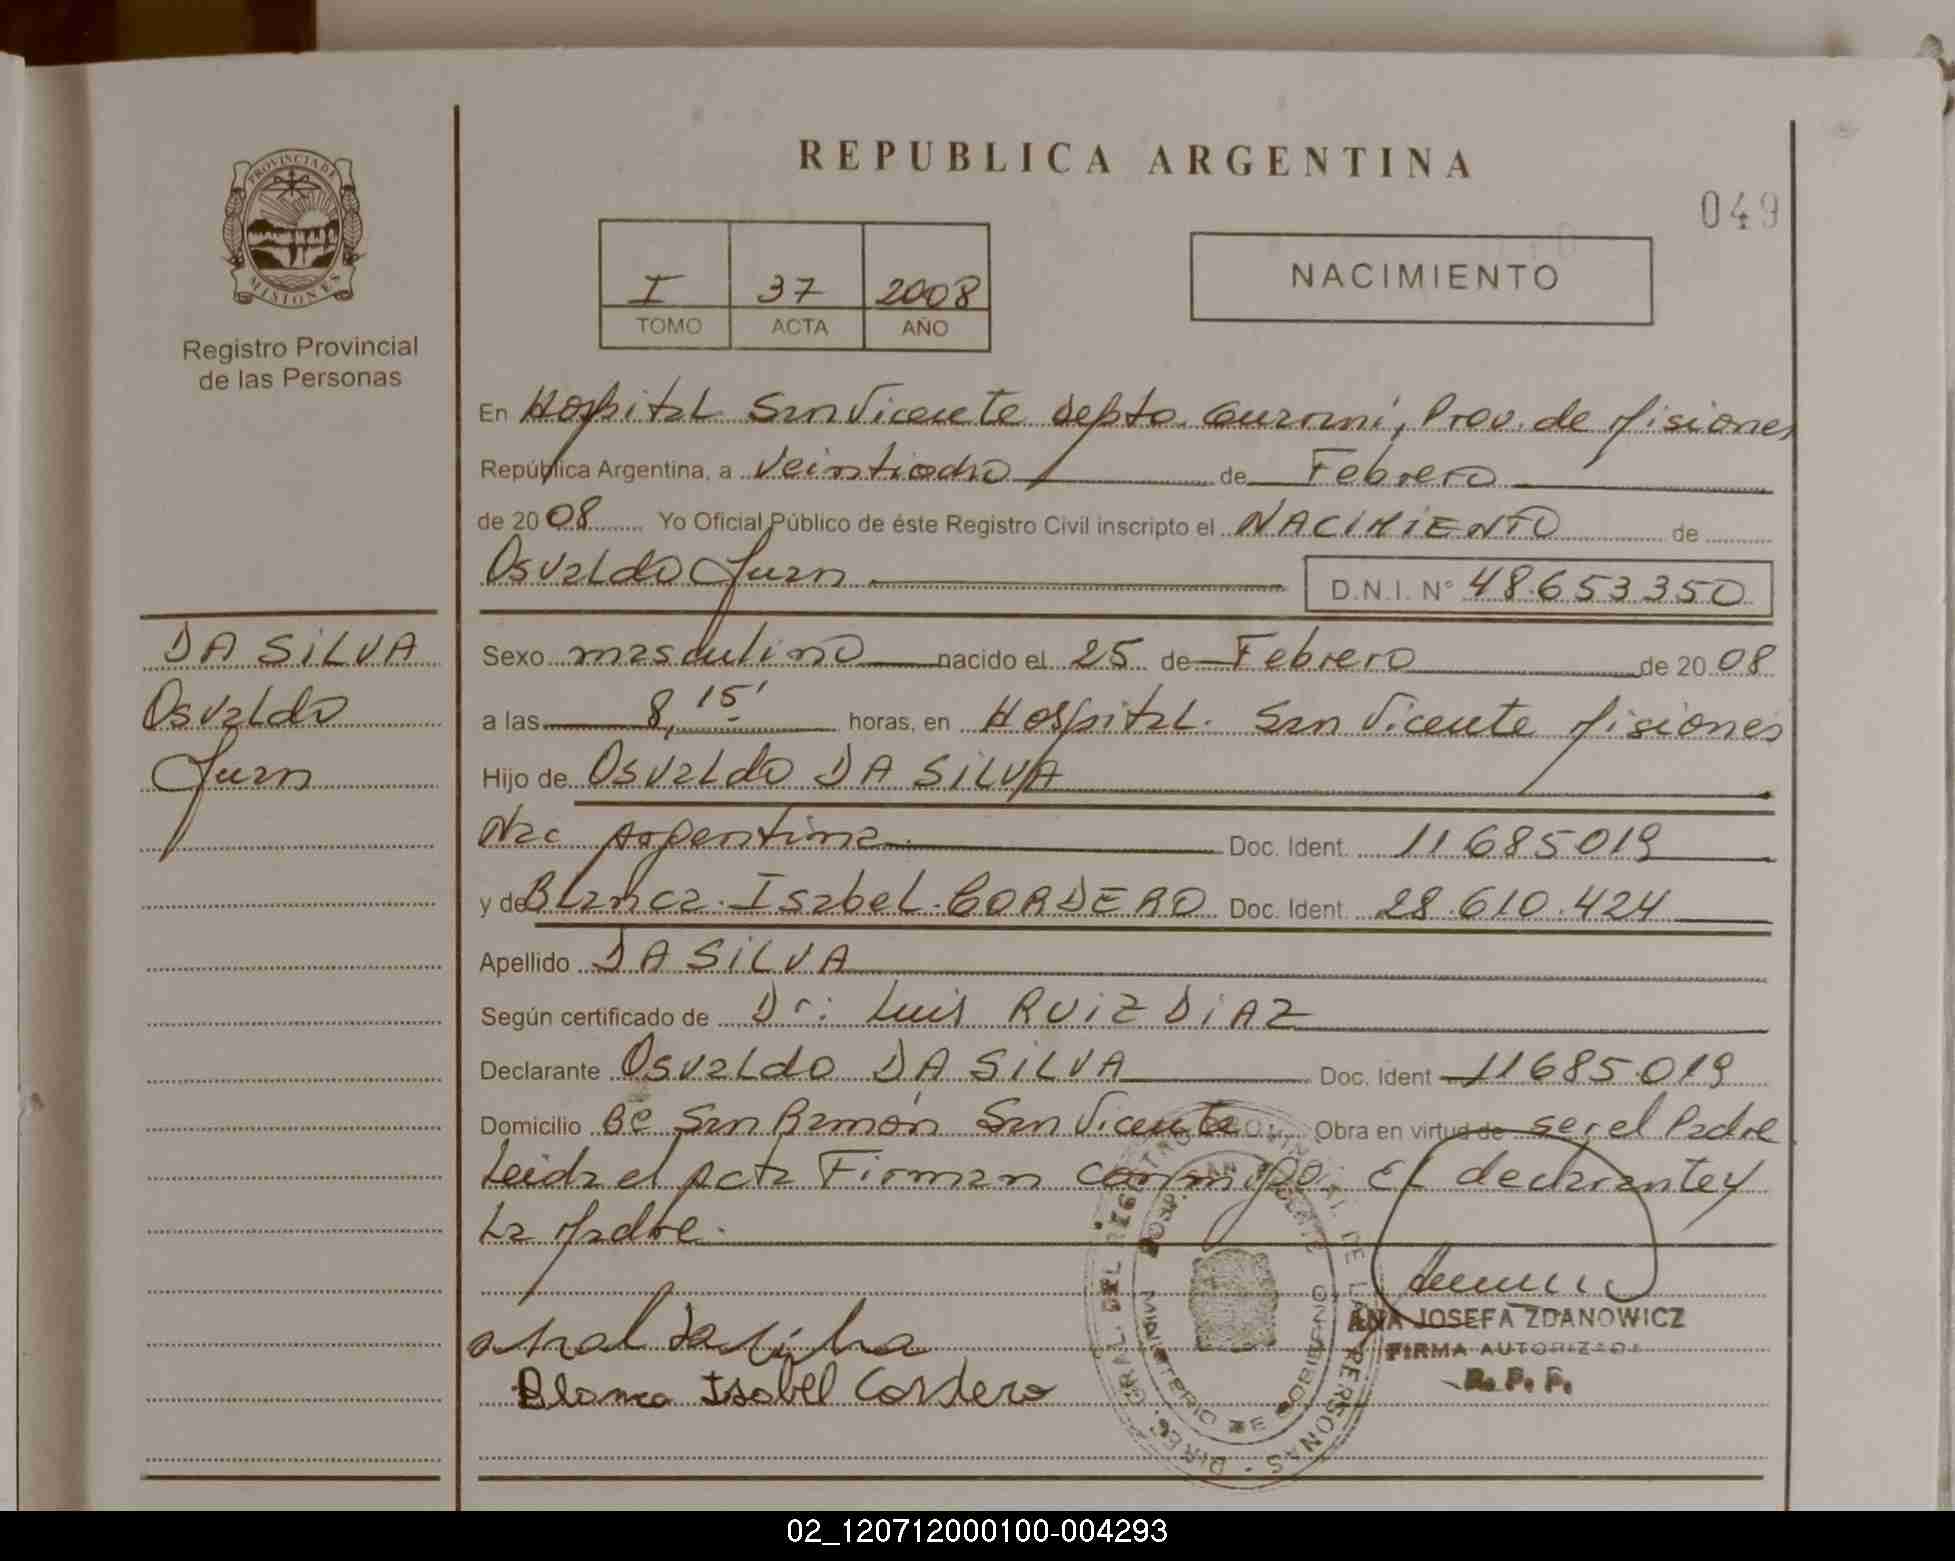 REPUBLICA ARGENTINA
049
PROVINCIA DE
MISIONES
Registro Provincial
de las Personas
I 37 2008
TOMO ACTA AÑO
NACIMIENTO
En Hospital San Vicente Depto. Guaraní, Prov. de Misiones
República Argentina, a veintiocho de Febrero
de 2008 Yo Oficial Público de éste Registro Civil inscripto el NACIMIENTO de
Osvaldo Juan D.N.I. N° 48.653.350
DA SILVA
Osvaldo
Juan
Sexo masculino nacido el 25 de Febrero de 2008
a las 8,15' horas, en Hospital. San Vicente Misiones
Hijo de Osvaldo DA SILVA
Nac Argentina. Doc. Ident. 11685019
y de Blanca Isabel CORDERO Doc. Ident. 28.610.424
Apellido DA SILVA
Según certificado de Dr: Luis RUIZ DIAZ
Declarante Osvaldo DA SILVA Doc. Ident 11685019
Domicilio Bº San Ramón San Vicente Obra en virtud de ser el Padre
Leida el Acta Firman conmigo: El declarante y
La Madre.
Blanca Isabel Cordero
ANA JOSEFA ZDANOWICZ
FIRMA AUTORIZADA
R. P. P.
DIREC. GRAL. DEL REGISTRO PROVINCIAL DE LAS PERSONAS
HOSP. SAN VICENTE
MINISTERIO DE GOBIERNO
02_120712000100-004293